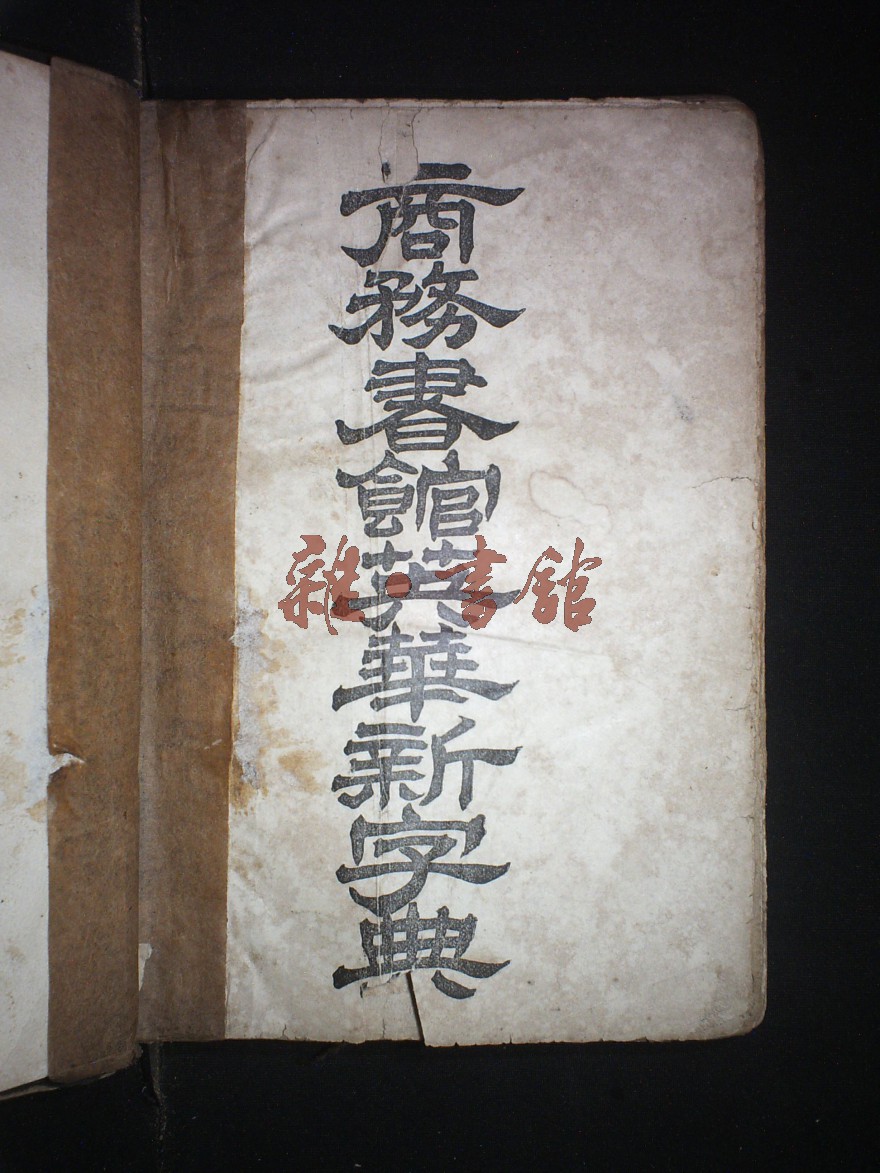 商務書館英華新字典
雜·書館